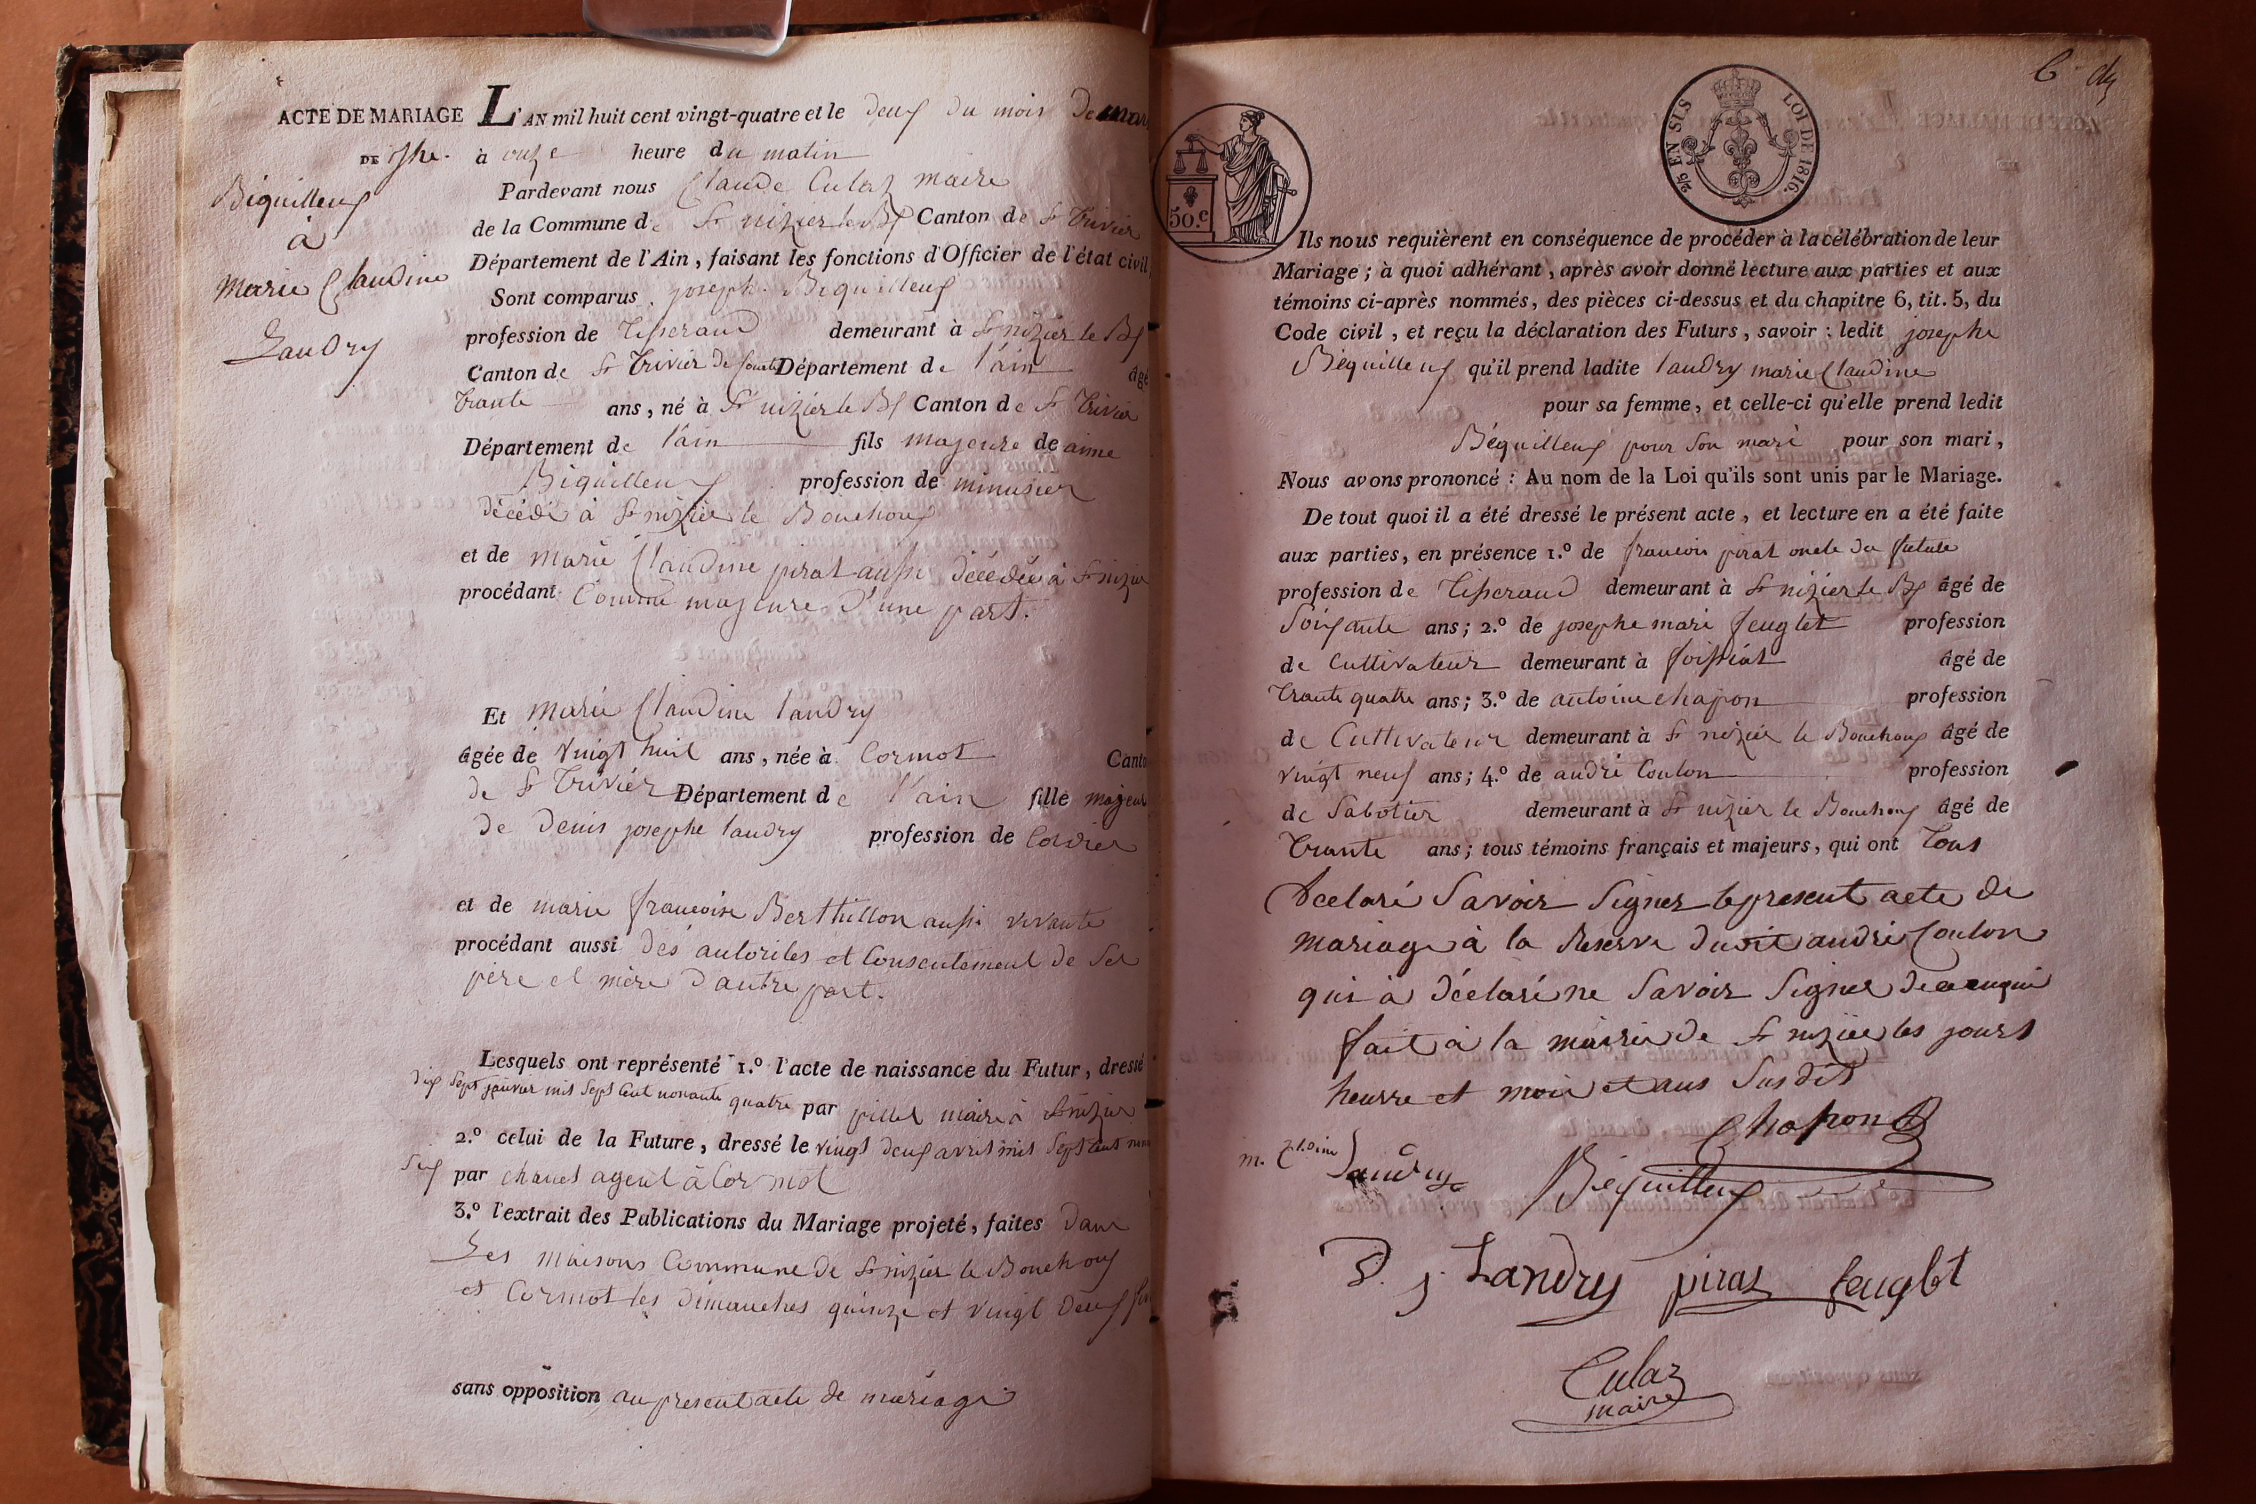 ACTE DE MARIAGE L'AN mil huit cent vingt-quatre et le deux du mois De mars
DE jhe. à onze heure du matin
Béquilleux
à
Marie Claudine
Landry
Pardevant nous Claude Culaz maire
de la Commune de St nizier le Bx Canton de St Trivier
Département de l'Ain, faisant les fonctions d'Officier de l'état civil
Sont comparus joseph Béquilleux
profession de Tisserand demeurant à St nizier le Bx
Canton de St Trivier de Courtes Département de l'ain âgé
trante ans, né à St nizier le Bx Canton de St Trivier
Département de l'ain fils majeure de aime
Béquilleux profession de minusier
décédé à St nizier le Bouchoux
et de marie Claudine pirat aussi décédée à St nizier
procédant Comme majeure d'une part.
Et marie Claudine landry
âgée de vingt huit ans, née à Cormot Canto
de St Trivier Département de l'ain fille majeur
de denis josephe landry profession de Cordier
et de marie francoise Berthillon aussi vivante
procédant aussi des autorites et Consentement de Ses
père et mère d'autre part.
Lesquels ont représenté 1.º l'acte de naissance du Futur, dressé
dix Sept janvier mil Sept Cent nonante quatre par pillet maire à St nizier
2.º celui de la Future, dressé le vingt deux avril mil Sept Cent nona
Six par agent à Cormot
3.º l'extrait des Publications du Mariage projeté, faites dans
Les maisons Commune de St nizier le Bouchoux
et Cormot les dimanches quinze et vingt deux
sans opposition au present acte de mariage
6
50.c
2/5 EN SUS LOI DE 1816.
Ils nous requièrent en conséquence de procéder à la célébration de leur
Mariage; à quoi adhérant, après avoir donné lecture aux parties et aux
témoins ci-après nommés, des pièces ci-dessus et du chapitre 6, tit. 5, du
Code civil, et reçu la déclaration des Futurs, savoir: ledit josephe
Béquilleux qu'il prend ladite landry marie Claudine
pour sa femme, et celle-ci qu'elle prend ledit
Béquilleux pour son mari pour son mari,
Nous avons prononcé: Au nom de la Loi qu'ils sont unis par le Mariage.
De tout quoi il a été dressé le présent acte, et lecture en a été faite
aux parties, en présence 1.º de francois pirat oncle du future
profession de Tisserand demeurant à St nizier le Bx âgé de
Soixante ans; 2.º de josephe mari feuglet profession
de Cultivateur demeurant à foissiat âgé de
trante quatre ans; 3.º de antoine chapon profession
de Cultivateur demeurant à St nizier le Bouchoux âgé de
vingt neuf ans; 4.º de andré Coulon profession
de Sabotier demeurant à St nizier le Bouchoux âgé de
trante ans; tous témoins français et majeurs, qui ont Tous
declaré Savoir Signer le present acte de
mariage à la Reserve dudit andré Coulon
qui à déclaré ne Savoir Signer de ce enquis
fait à la mairie de St nizier les jours
heurre et mois et ans Susdit
Chapon
m. Cldine Landry Béquilleux
D. j. Landry piraz feuglet
Culaz
maire